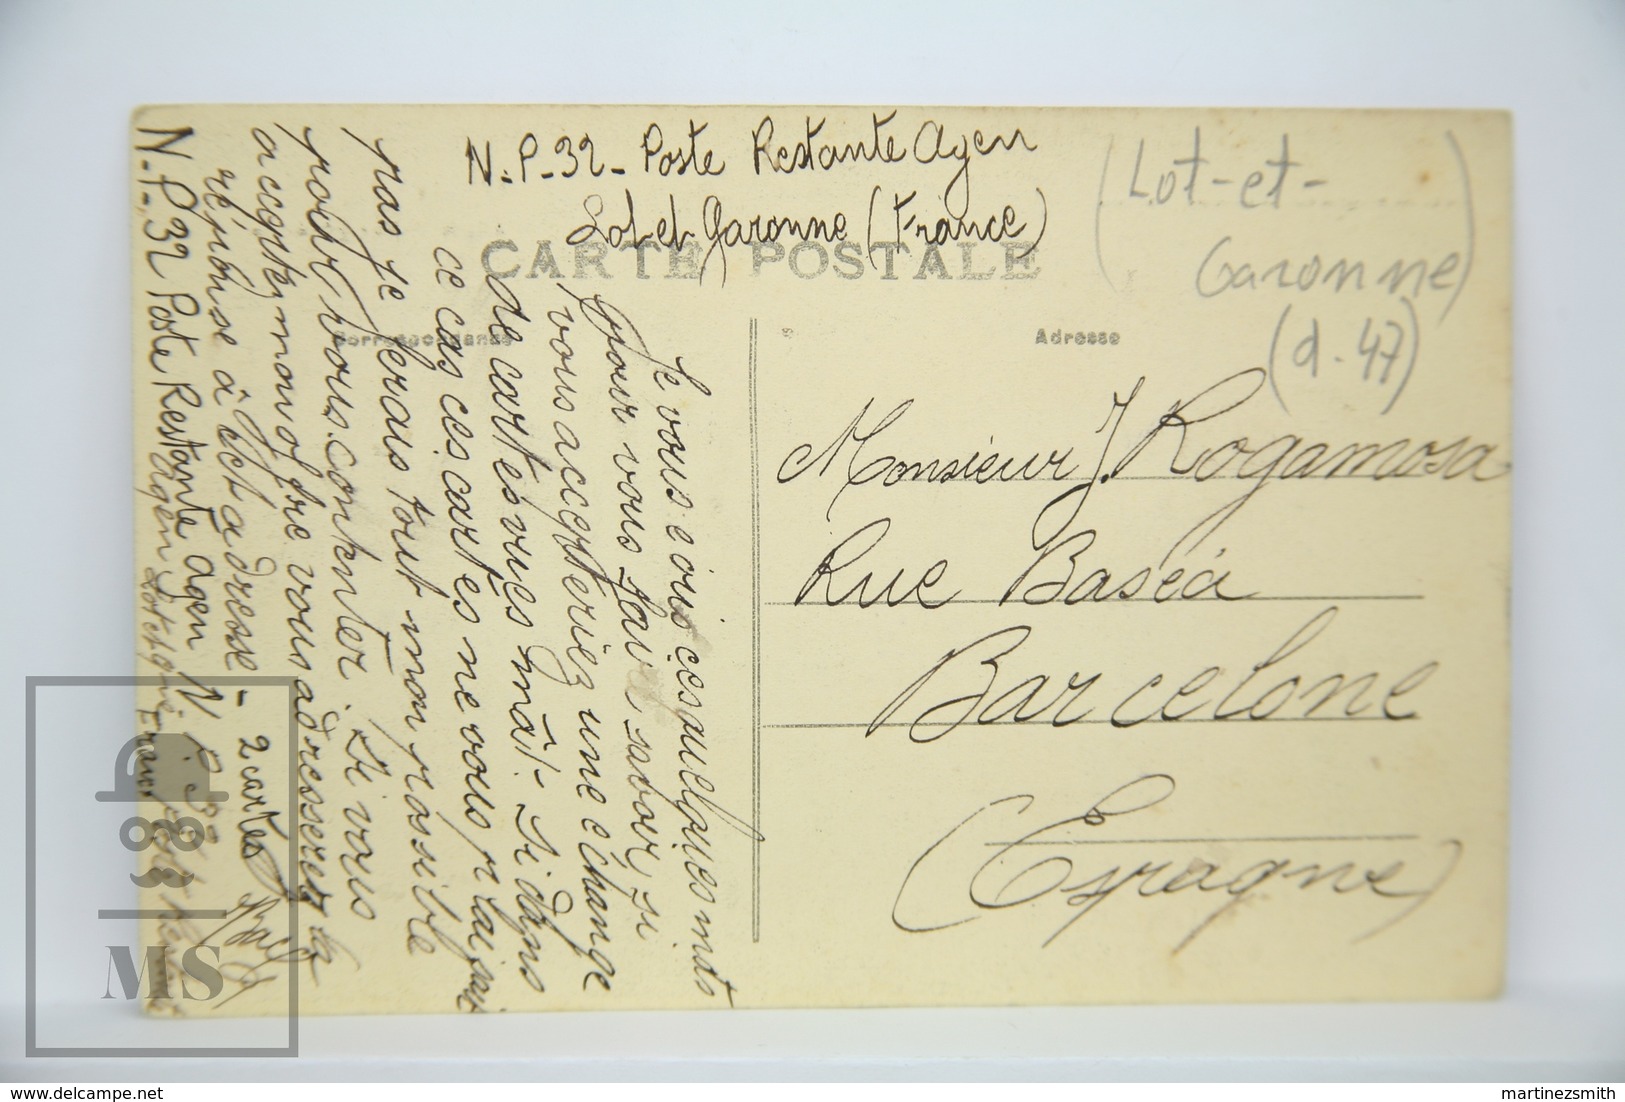 N.-P-32- Poste Restante Agen
Lot et Garonne (France)
CARTE POSTALE
Correspondance
Adresse
(Lot-et-
Garonne)
(d-47)
Monsieur J. Rogamosa
Rue Baséa
Barcelone
(Espagne)
Je vous écris ces quelques mots
pour vous faire savoir si
vous accepteriez une échange
de cartes vues mât.- Si dans
ce cas ces cartes ne vous plaisait
pas je ferais tout mon possible
pour vous contenter. Si vous
acceptez mon offre vous adresserez la
réponse à cet adresse - 2 cartes
N.-P-32 Poste Restante Agen
Agen Lot et Garonne France
MS
For sale on Delcampe.net
martinezsmith